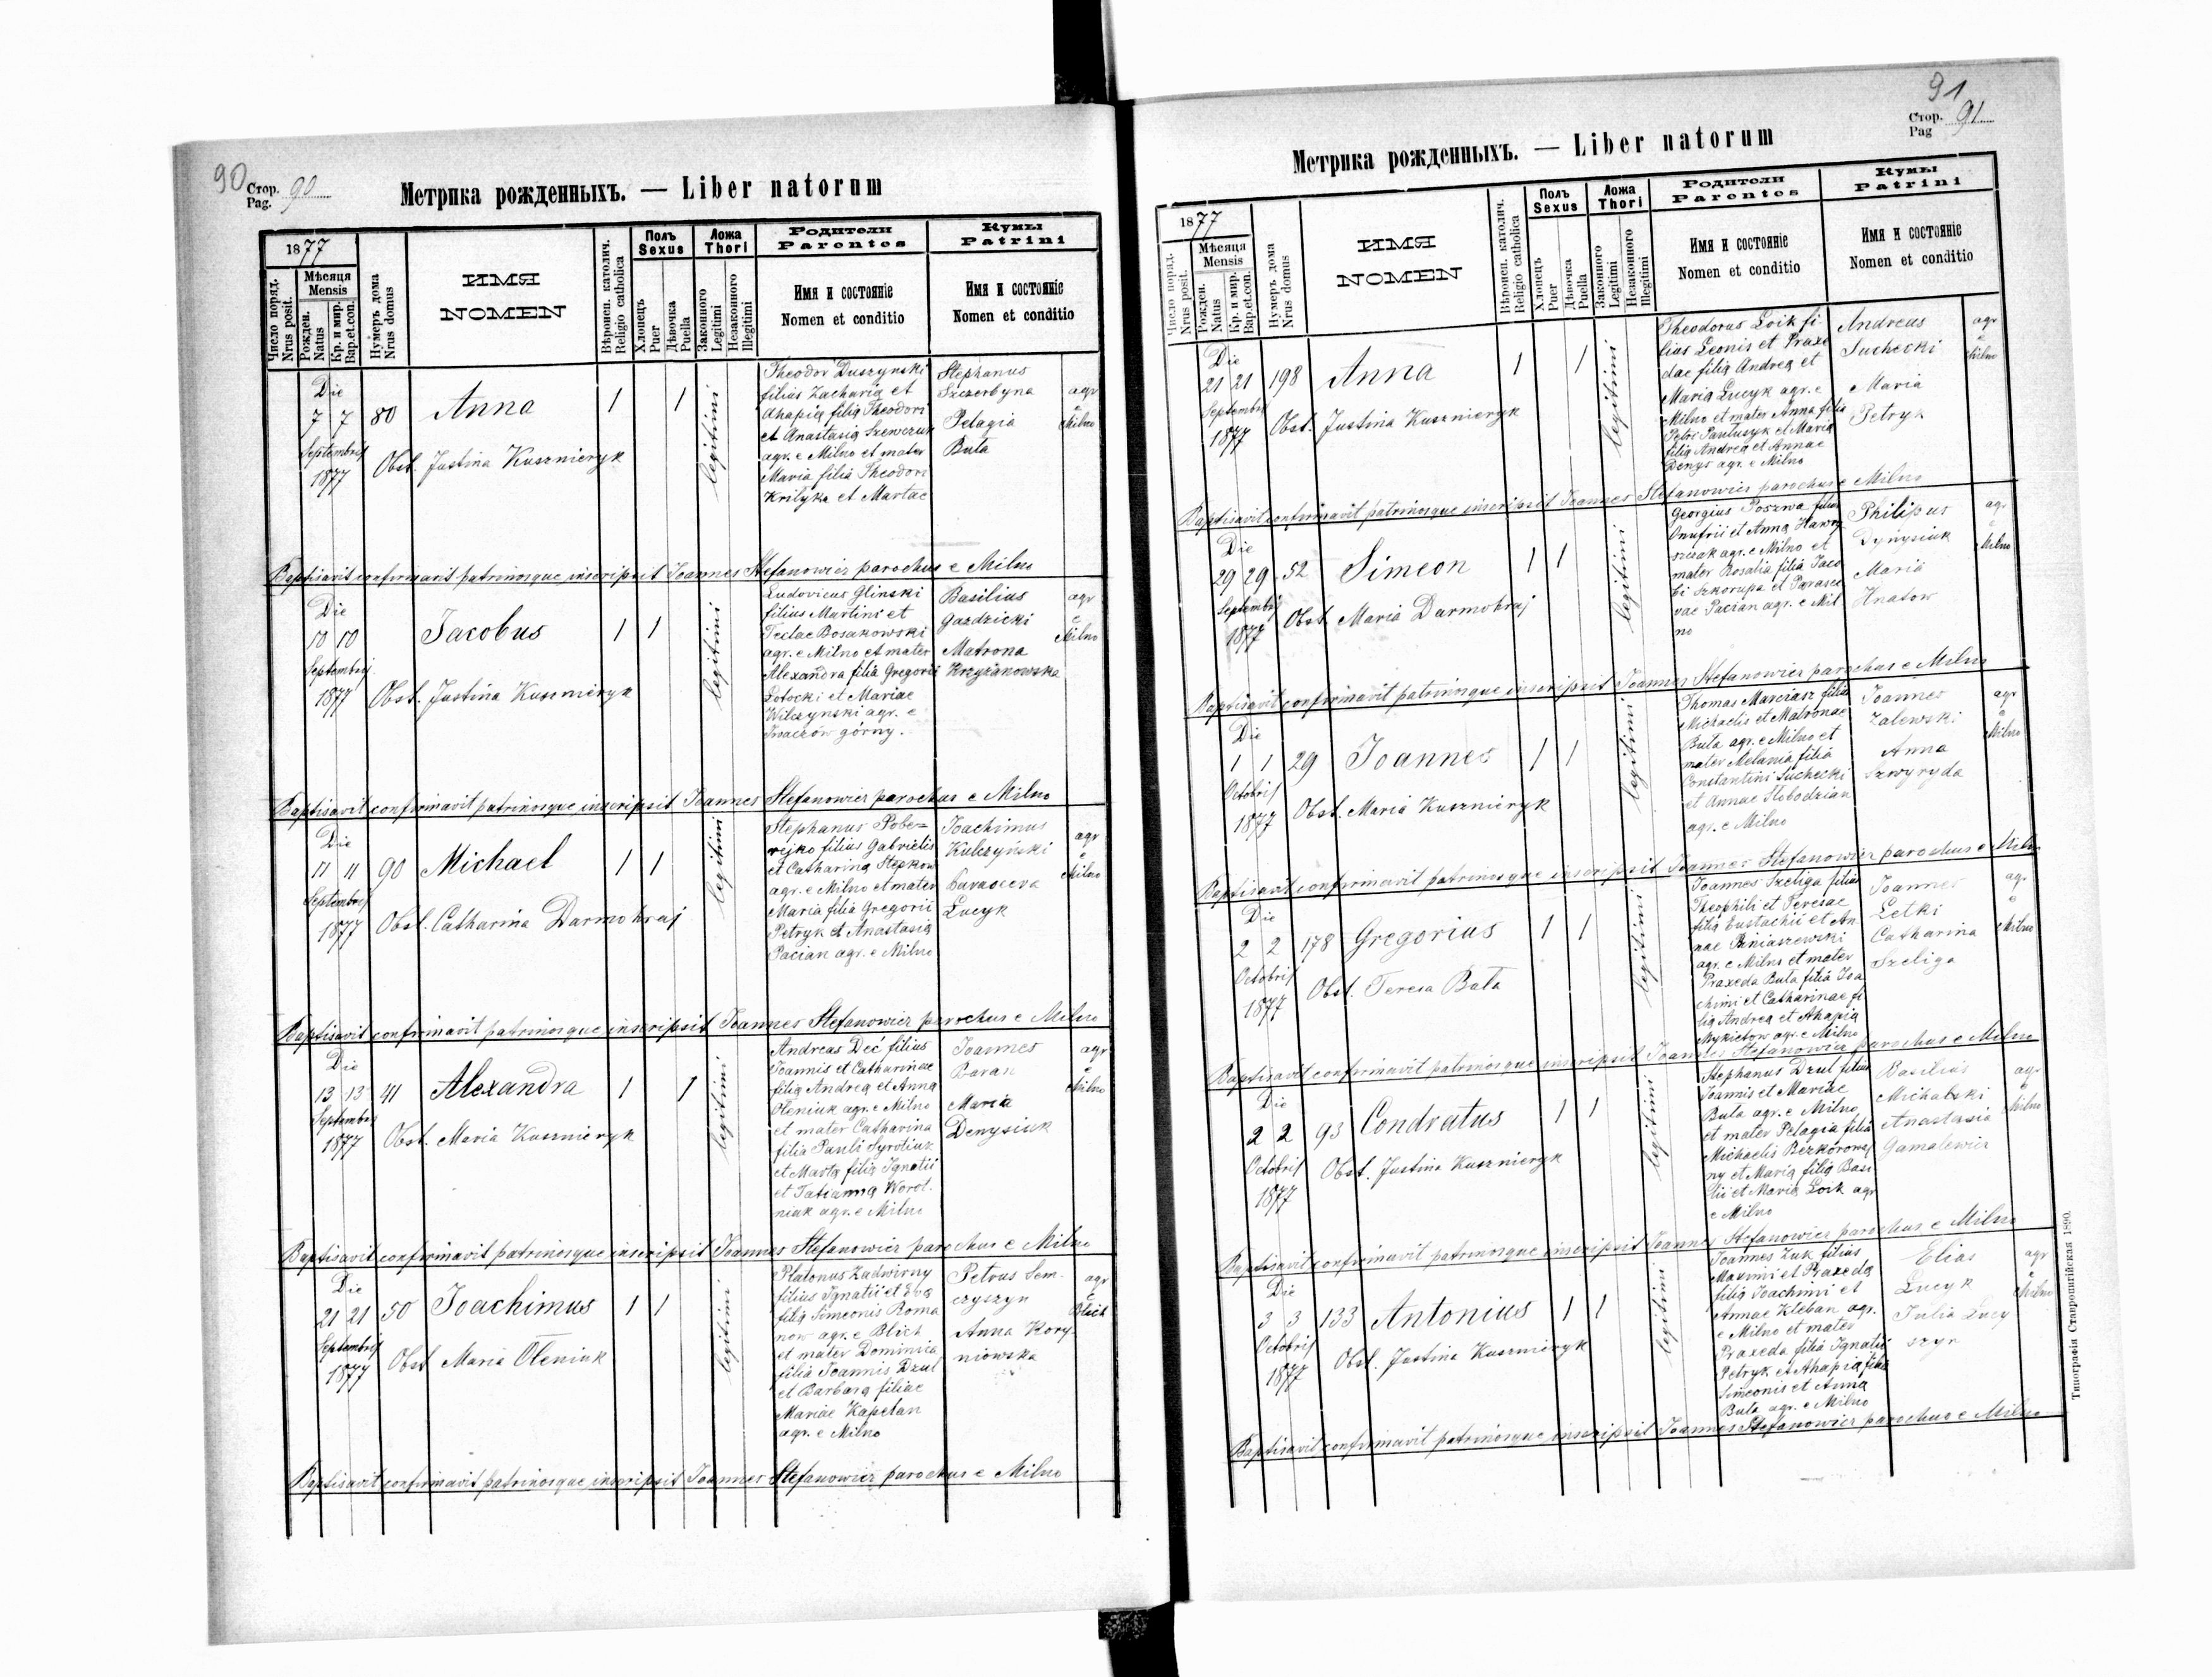 90
Стор. 90
Pag.
Метрика рожденныхъ. — Liber natorum
1877
Число поряд.
Nrus posit.
Мѣсяця
Mensis
Рожден.
Natus
Кр. и мир.
Bap.et.con.
Нумеръ дома
Nrus domus
ИМЯ
NOMEN
Вѣроисп. католич.
Religio catholica
Полъ
Sexus
Хлопецъ
Puer
Дѣвочка
Puella
Ложа
Thori
Законного
Legitimi
Незаконного
Illegitimi
Родители
Parentes
Имя и состояніе
Nomen et conditio
Кумы
Patrini
Имя и состояніе
Nomen et conditio
Die
7 7 80 Anna 1 1 legitimi
Septembris
1877
Obst. Justina Kusznieryk
Theodor Duszynski
filius Zacharią et
Ahapią filią Theodori
et Anastasią Szewczuk
agr. e Milno et mater
Maria filia Theodori
Krilyka et Martae
Stephanus
Szczerbyna
Pelagia
Buta
agr
e
Milno
Baptisavit confirmavit patrinosque inscripsit Joannes Stefanowicz parochus e Milno
Die
10 10 Jacobus 1 1 legitimi
Septembris
1877
Obst. Justina Kusznieryk
Ludovicus Glinski
filius Martini et
Teclae Bosakowski
agr. e Milno et mater
Alexandra filia Gregorii
Lotocki et Mariae
Wilczynski agr. e
Iwaczow górny.
Basilius
Gazdzicki
Matrona
Krzyżanowska
agr
e
Milno
Baptisavit confirmavit patrinosque inscripsit Joannes Stefanowicz parochus e Milno
Die
11 11 90 Michael 1 1 legitimi
Septembris
1877
Obst. Catharina Darmohraj
Stephanus Pobe=
rejko filius Gabrielis
et Catharina Stepkow
agr. e Milno et mater
Maria filia Gregorii
Petryk et Anastasią
Pacian agr. e Milno
Joachimus
Kulczyński
Parasceva
Lucyk
agr
e
Milno
Baptisavit confirmavit patrinosque inscripsit Joannes Stefanowicz parochus e Milno
Die
13 13 41 Alexandra 1 1 legitimi
Septembris
1877
Obst. Maria Kusznieryk
Andreas Deć filius
Joannis et Catharinae
filią Andreą et Anną
Oleniuk agr. e Milno
et mater Catharina
filia Pauli Syrotiuk
et Martą filią Ignatii
et Tatianną Woret-
niuk agr. e Milno
Joannes
Baran
Maria
Denysiuk
agr
e
Milno
Baptisavit confirmavit patrinosque inscripsit Joannes Stefanowicz parochus e Milno
Die
21 21 50 Joachimus 1 1 legitimi
Septembris
1877
Obst Maria Oleniuk
Platonus Zadwirny
filius Ignatii et Evą
filią Simeonis Roma
now agr. e Blich
et mater Dominica
filia Joannis Dzul
et Barbarą filiae
Mariae Kapetan
agr. e Milno
Petrus Sem-
czyszyn
Anna Kory-
niowska
agr
e
Blich
Baptisavit confirmavit patrinosque inscripsit Joannes Stefanowicz parochus e Milno
91
Стор. 91
Pag
Метрика рожденныхъ. — Liber natorum
1877
Число поряд.
Nrus posit.
Мѣсяця
Mensis
Рожден.
Natus
Кр. и мир.
Bap.et.con.
Нумеръ дома
Nrus domus
ИМЯ
NOMEN
Вѣроисп. католич.
Religio catholica
Полъ
Sexus
Хлопецъ
Puer
Дѣвочка
Puella
Ложа
Thori
Законного
Legitimi
Незаконного
Illegitimi
Родители
Parentes
Имя и состояніе
Nomen et conditio
Кумы
Patrini
Имя и состояніе
Nomen et conditio
Die
21 21 198 Anna 1 1 legitimi
Septembris
1877
Obst. Justina Kusznieryk
Theodorus Loik fi
lius Leonis et Praxe
dae filią Andreą et
Marią Lucyk agr. e
Milno et mater Anna filia
Petri Pawlusyk et Marią
filią Andreą et Annae
Denys agr. e Milno
Andreas
Suchecki
Maria
Petryk
agr
e
Milno
Baptisavit confirmavit patrinosque inscripsit Joannes Stefanowicz parochus e Milno
Die
29 29 52 Simeon 1 1 legitimi
Septembris
1877
Obst Maria Darmohraj
Georgius Poszwa filius
Onufrii et Anną Hawry
szczak agr. e Milno et
mater Rosalia filia Jaco
bi Szkorupa et Parasce
vae Pacian agr. e Mil
no
Philipus
Dynysiuk
Maria
Hnatow
agr
e
Milno
Baptisavit confirmavit patrinosque inscripsit Joannes Stefanowicz parochus e Milno
Die
1 1 29 Joannes 1 1 legitimi
Octobris
1877
Obst. Maria Kusznieryk
Thomas Marciasz filius
Michaelis et Matronae
Buta agr. e Milno et
mater Melania filia
Constantini Suchecki
et Annae Slobodzian
agr. e Milno
Joannes
Zalewski
Anna
Szwyryda
agr
e
Milno
Baptisavit confirmavit patrinosque inscripsit Joannes Stefanowicz parochus e Milno
Die
2 2 178 Gregorius 1 1 legitimi
Octobris
1877
Obst. Teresa Buta
Joannes Szeliga filius
Theophili et Teresae
filią Eustachii et An
nae
agr. e Milno et mater
Praxeda Buta filia Joa
chimi et Catharinae fi
lią Andreą et Ahapią
Mykietow agr. e Milno
Joannes
Letki
Catharina
Szeliga
agr
e
Milno
Baptisavit confirmavit patrinosque inscripsit Joannes Stefanowicz parochus e Milno
Die
2 2 93 Condratus 1 1 legitimi
Octobris
1877
Obst. Justina Kusznieryk
Stephanus Dzul filius
Joannis et Mariae
Buta agr. e Milno
et mater Pelagia filia
Michaelis
ny et Marią filią Basi
lii et Marią Loik agr
e Milno
Basilius
Michalski
Anastasia
Gamalewicz
agr
e
Milno
Baptisavit confirmavit patrinosque inscripsit Joannes Stefanowicz parochus e Milno
Die
3 3 133 Antonius 1 1 legitimi
Octobris
1877
Obst. Justina Kusznieryk
Joannes Zuk filius
Maximi et Praxedą
filią Joachimi et
Annae Kleban agr.
e Milno et mater
Praxeda filia Ignatii
Petryk et Ahapią filią
Simeonis et Anną
Buta agr. e Milno
Elias
Lucyk
Julia Lucy
szyn
agr
e
Milno
Baptisavit confirmavit patrinosque inscripsit Joannes Stefanowicz parochus e Milno
Типографія Ставропигійская 1890.